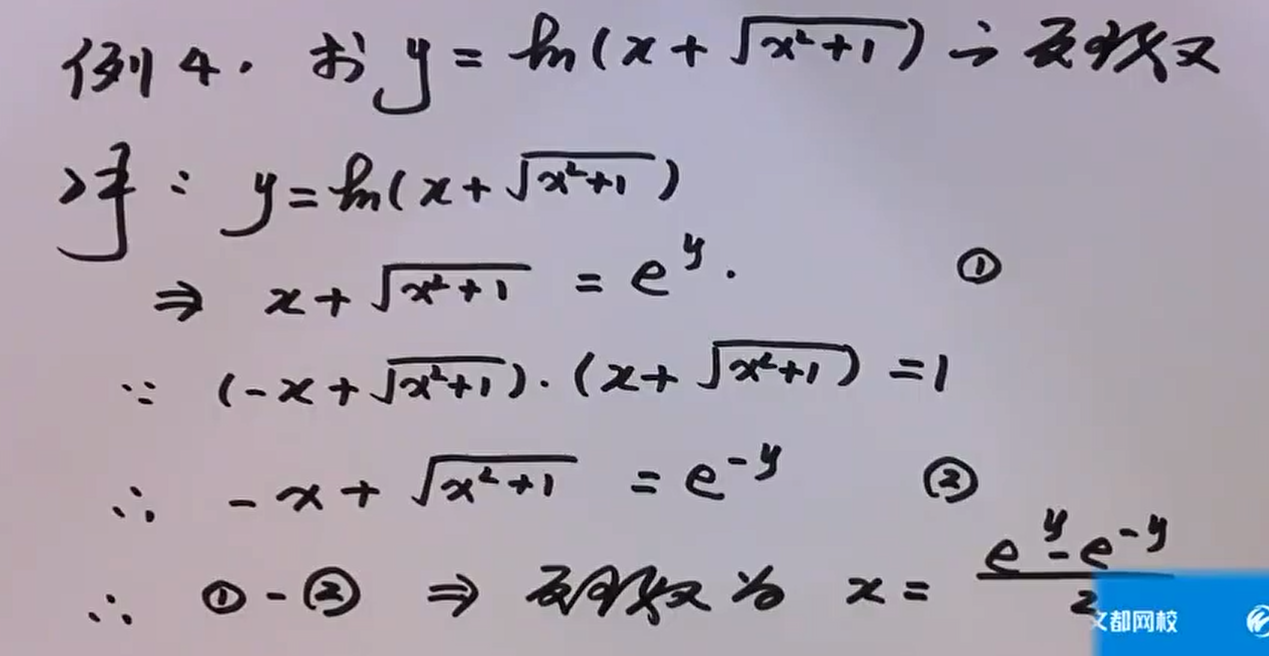 例4. 求 y = ln(x + √(x²+1)) 之反函数
解: y = ln(x + √(x²+1))
⇒ x + √(x²+1) = e^y. ①
∵ (-x + √(x²+1))·(x + √(x²+1)) = 1
∴ -x + √(x²+1) = e^{-y} ②
∴ ① - ② ⇒ 反函数为 x = (e^y - e^{-y})/2
文都网校